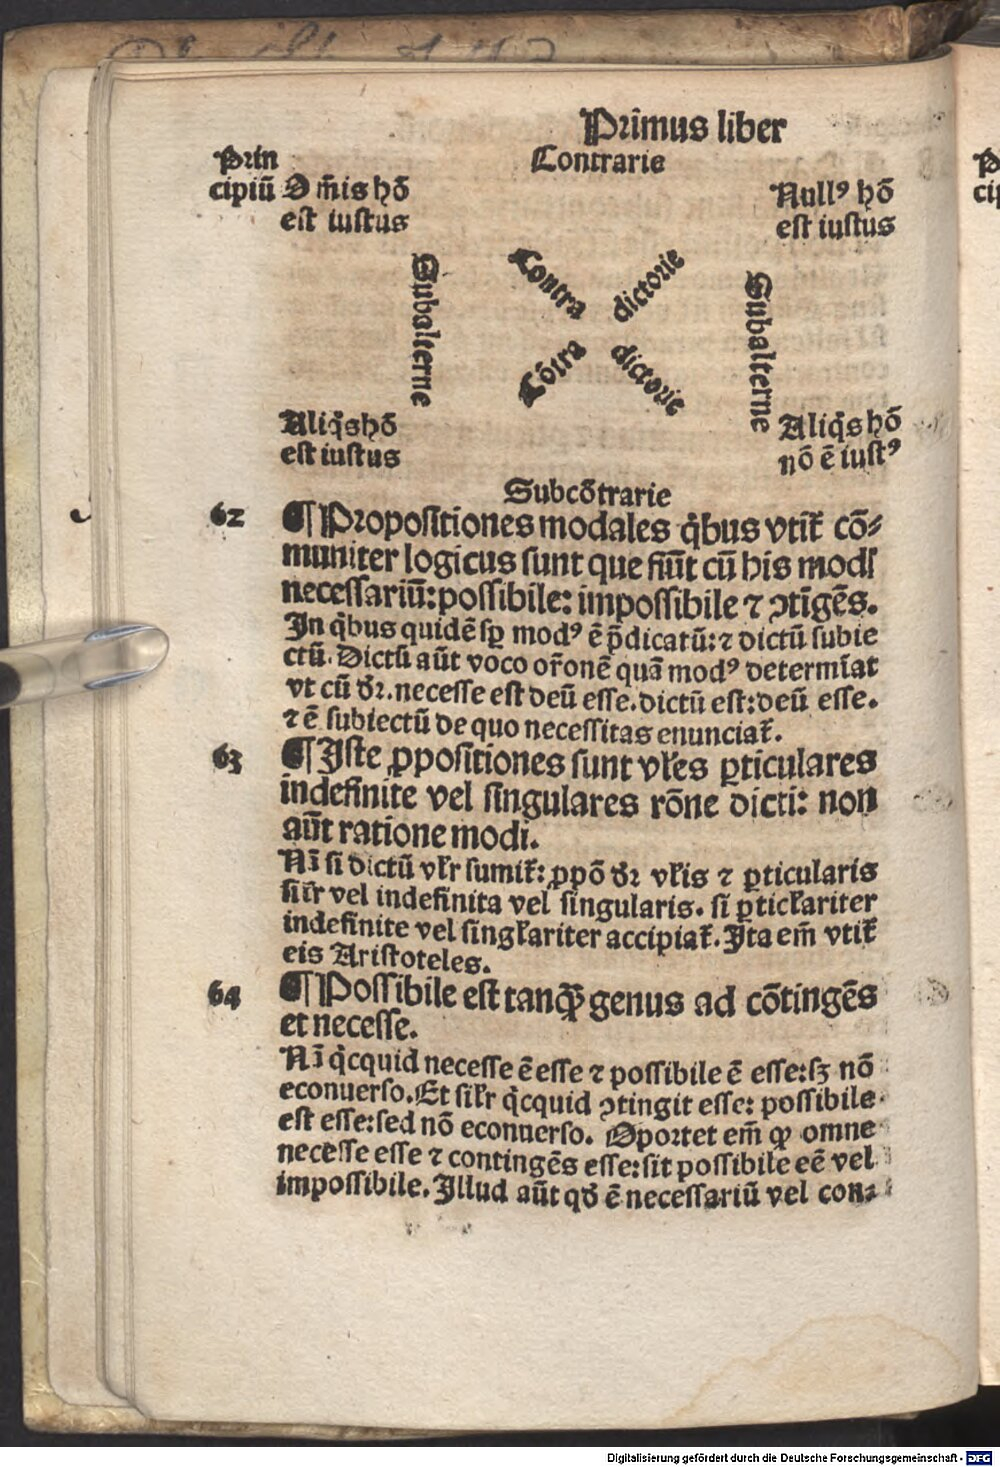 Primus liber
Prin
cipiū
Contrarie
Om̄is hō
est iustus
Nullꝰ hō
est iustus
Subalterne
Contra dictorie
Cōtra dictorie
Subalterne
Aliq̄s hō
est iustus
Aliq̄s hō
nō ē iustꝰ
Subcōtrarie
62 ¶ Propositiones modales q̄bus vtit̄ cō⸗
muniter logicus sunt que fiūt cū his modis
necessariū: possibile: impossibile ⁊ ꝯtīgēs.
In q̄bus quidē sꝑ modꝰ ē p̄dicatū: ⁊ dictū subie
ctū. Dictū aūt voco or̄onē quā modꝰ determīat
vt cū dr̄. necesse est deū esse. dictū est: deū esse.
⁊ ē subiectū de quo necessitas enunciat̄.
63 ¶ Iste ꝓpositiones sunt vl̄es ꝑticulares
indefinite vel singulares rōne dicti: non
aūt ratione modi.
Nā si dictū vl̄r sumit̄: ꝓpō dr̄ vl̄is ⁊ ꝑticularis
sil̄r vel indefinita vel singularis. si ꝑticl̄ariter
indefinite vel singl̄ariter accipiat̄. Ita em̄ vtit̄
eis Aristoteles.
64 ¶ Possibile est tanqꝫ genus ad cōtingēs
et necesse.
Nā q̄cquid necesse ē esse ⁊ possibile ē esse: sꝫ nō
econuerso. Et sil̄r q̄cquid ꝯtingit esse: possibile
est esse: sed nō econuerso. Oportet em̄ ꝙ omne
necesse esse ⁊ contingēs esse: sit possibile eē vel
impossibile. Illud aūt qd̄ ē necessariū vel con⸗
Digitalisierung gefördert durch die Deutsche Forschungsgemeinschaft - DFG